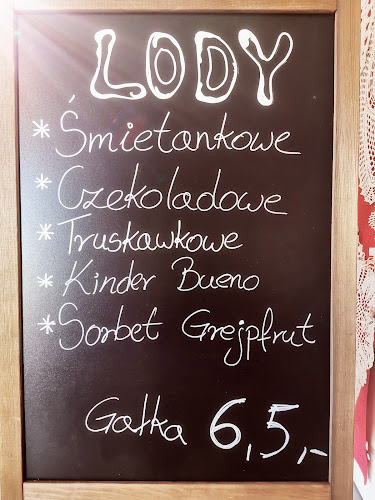 LODY
* Śmietankowe
* Czekoladowe
* Truskawkowe
* Kinder Bueno
* Sorbet Grejpfrut
Gałka 6,5,-